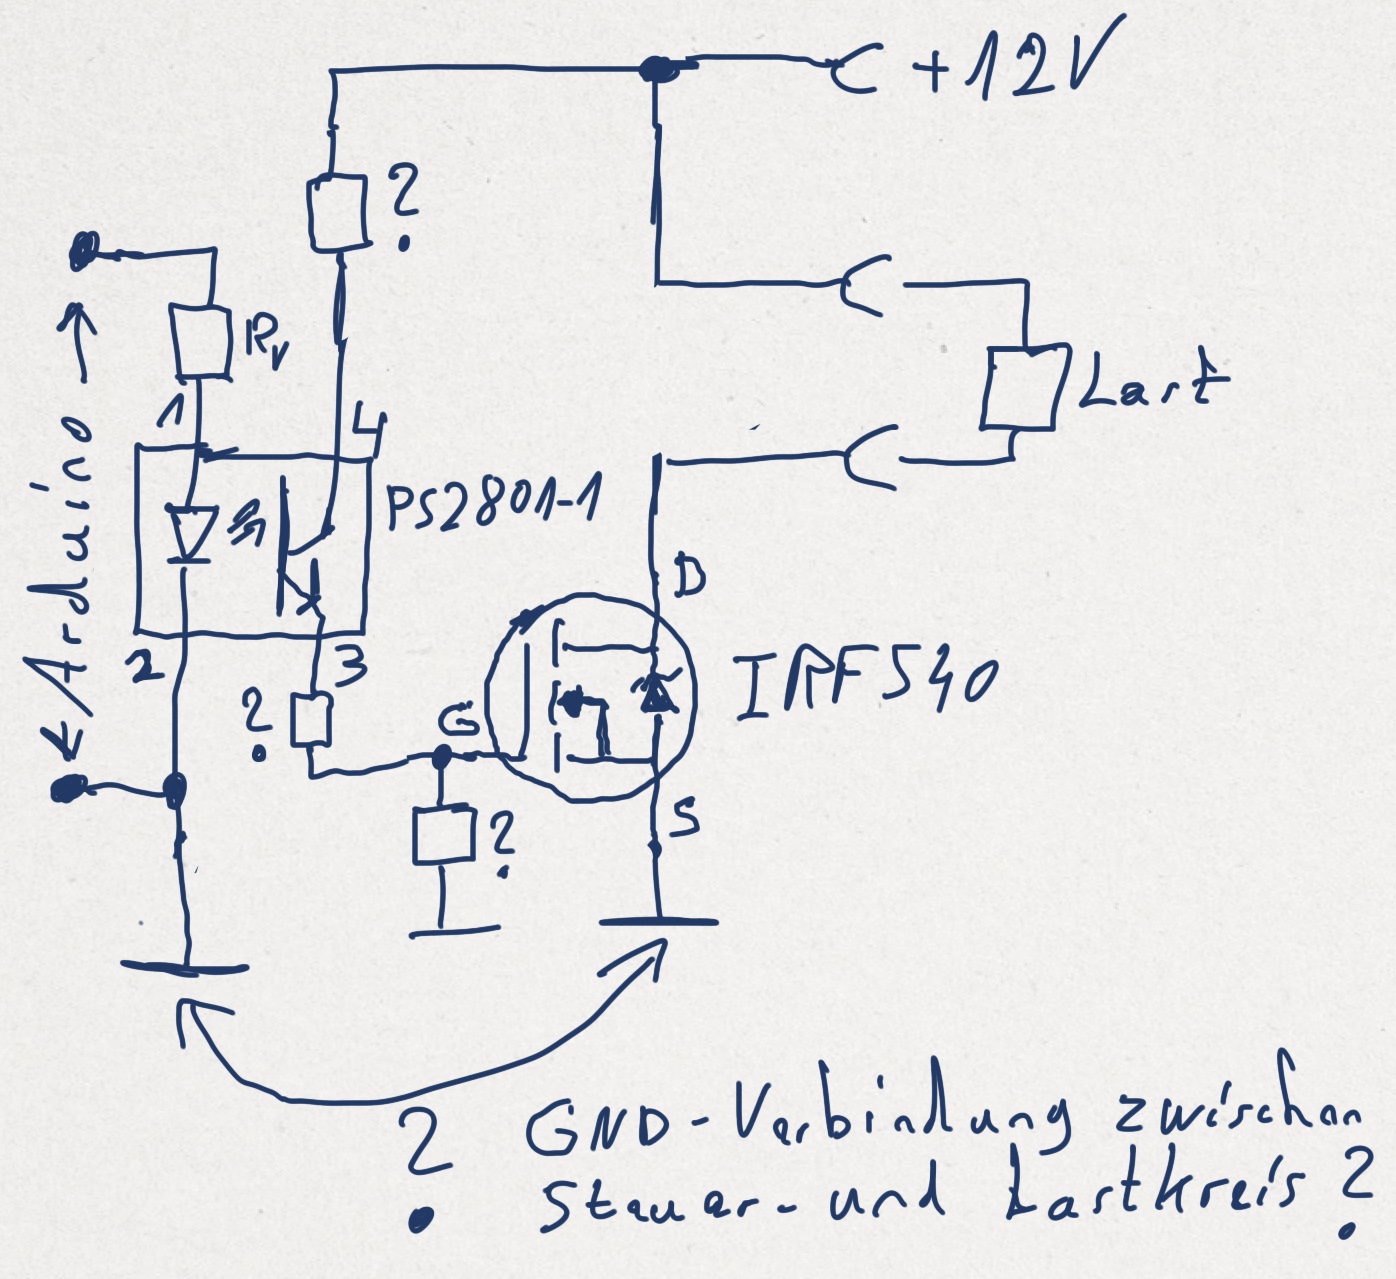 +12V
?
Rv
1
4
Last
PS2801-1
Arduino
D
2
3
IRF540
?
G
S
?
? GND-Verbindung zwischen
Steuer- und Lastkreis ?